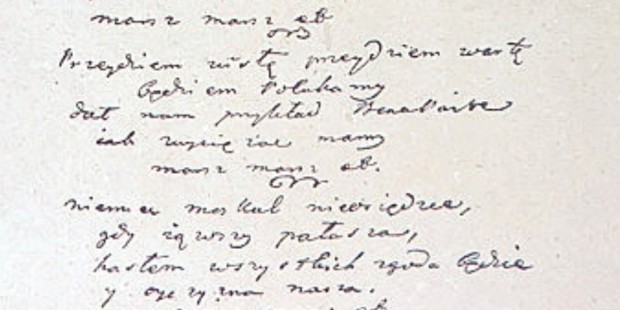 marsz marsz etc.
Przeydziem wisłę przeydziem wartę
będziem Polakamy
dał nam przykład Bonaparte
iak zwyciężać mamy
marsz marsz etc.
niemiec moskal nieosiędzie,
gdy iąwszy pałasza,
hasłem wszystkich zgoda będzie
y oyczyzna nasza.